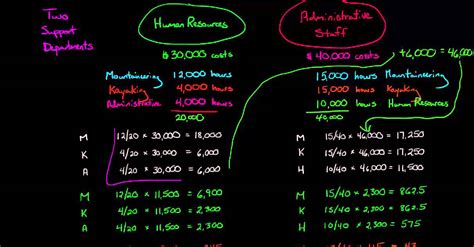 Two
Support
Departments
Human Resources
Administrative
Staff
$30,000 costs
$ 40,000 costs
+6,000 = 46,000
Mountaineering 12,000 hours
15,000 hours Mountaineering
Kayaking 4,000 hours
15,000 hours Kayaking
Administrative 4,000 hours
10,000 hours Human Resources
20,000
40,000
M 12/20 × 30,000 = 18,000
M 15/40 × 46,000 = 17,250
K 4/20 × 30,000 = 6,000
K 15/40 × 46,000 = 17,250
A 4/20 × 30,000 = 6,000
H 10/40 × 46,000 = 11,500
M 12/20 × 11,500 = 6,900
M 15/40 × 2,300 = 862.5
K 4/20 × 11,500 = 2,300
K 15/40 × 2,300 = 862.5
A 4/20 × 11,500 = 2,300
H 10/40 × 2,300 = 575